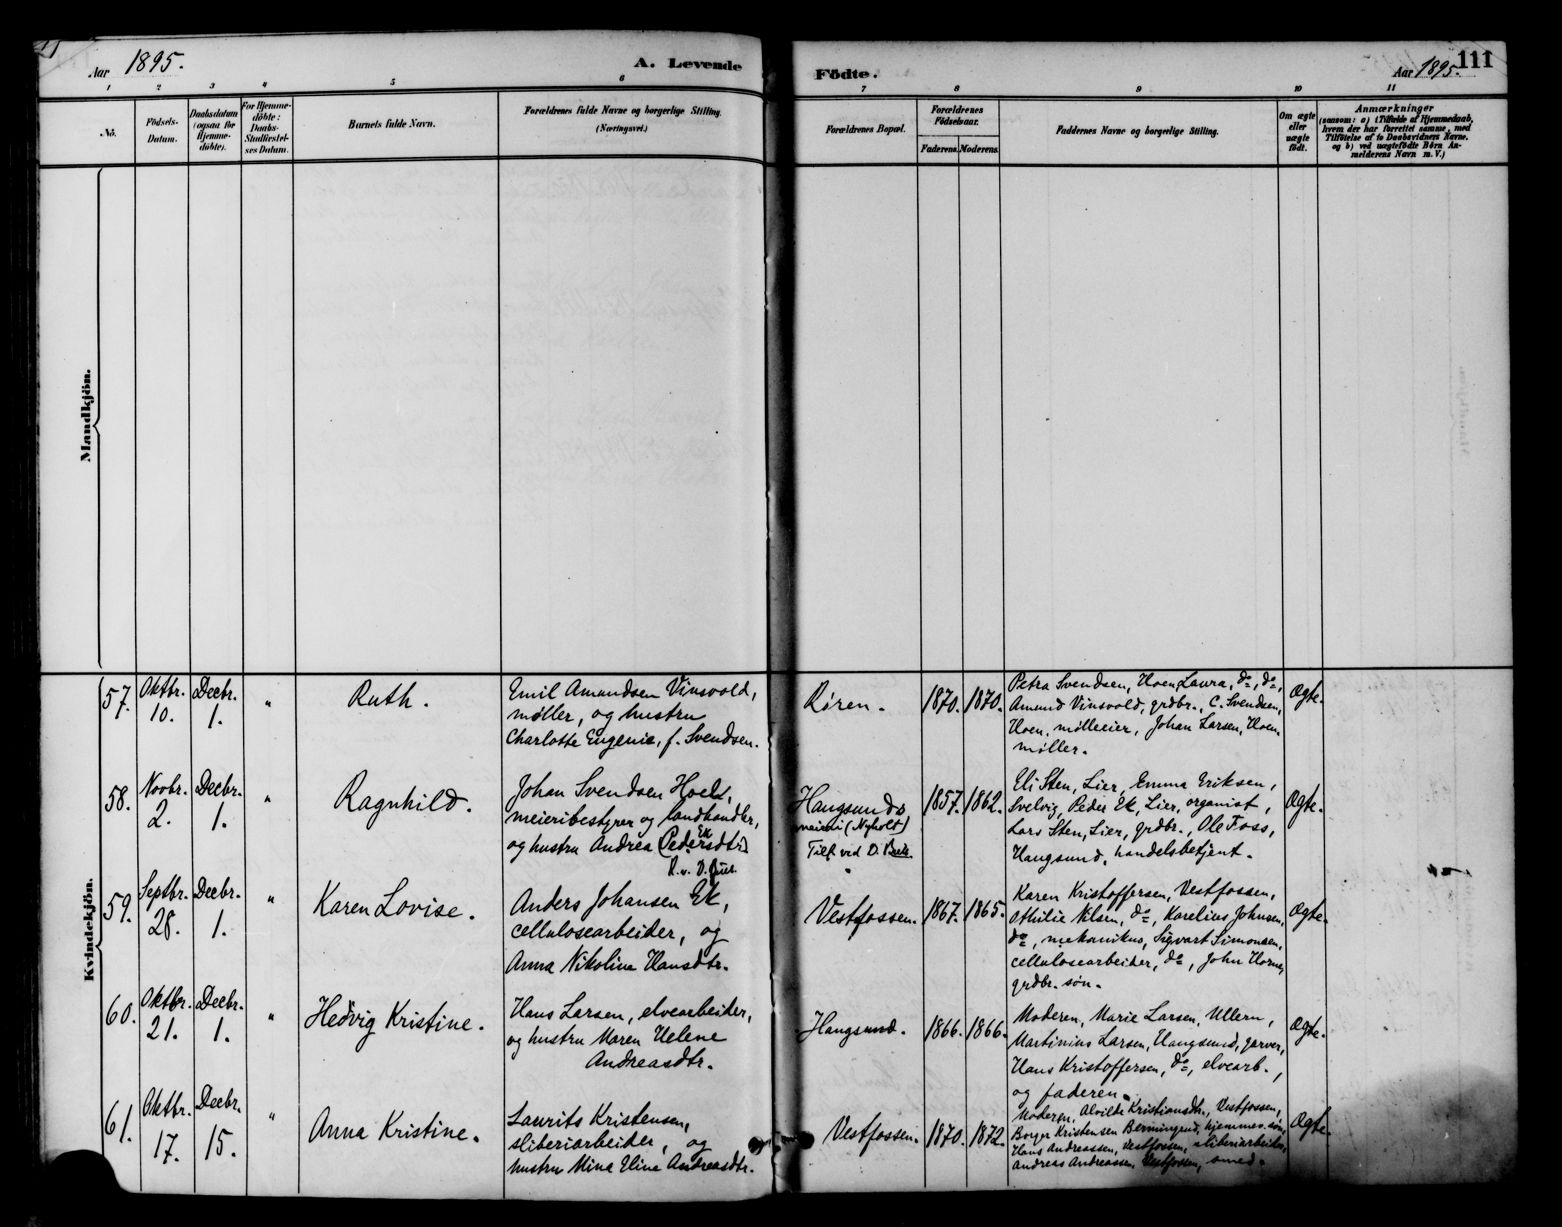 Aar 1895.
A. Levende
Födte.
Aar 1895.
111
1 2 3 4 5 6 7 8 9 10 11
No.
Födsels-
Datum.
Daabsdatum
(ogsaa for
Hjemme-
döbte).
For Hjemme-
döbte:
Daabs-
Stadfæstel-
ses Datum.
Barnets fulde Navn.
Forældrenes fulde Navne og borgerlige Stilling.
(Næringsvei.)
Forældrenes Bopæl.
Forældrenes
Födselsaar.
Faderens. Moderens.
Faddernes Navne og borgerlige Stilling.
Om ægte
eller
uægte
födt.
Anmærkninger
(saasom: a) i Tilfælde af Hjemmedaab,
hvem der har forrettet samme, med
Tilföielse af to Daabsvidners Navne,
og b) ved uægtefödte Börn An-
melderens Navn m. V.)
Mandkjön.
Kvindekjön.
57.
Oktbr.
10.
Decbr.
1.
"
Ruth.
Emil Amundsen Vinsvold,
møller, og hustru
Charlotte Eugenie, f. Svendsen.
Røren.
1870. 1870.
Petra Svendsen, Hoen, Laura, do, do,
Amund Vinsvold, grdbr., C. Svendsen,
Hoen, mølleeier, Johan Larsen, Hoen,
møller.
Ægte.
58.
Novbr.
2.
Decbr.
1.
"
Ragnhild.
Johan Svendsen Hoel,
meieribestyrer og landhandler,
og hustru Andrea Pedersdtr.
Ek
Haugsunds
meieri (Nyholt)
Tilf. ved D.
1857. 1862.
Eli Sten, Lier, Emma Eriksen,
Svelvig, Peder Ek, Lier, organist,
Lars Sten, Lier, grdbr., Ole Foss,
Haugsund, handelsbetjent.
Ægte.
59.
Septbr.
28.
Decbr.
1.
"
Karen Lovise.
Anders Johansen Ek,
cellulosearbeider, og
Anna Nikoline Hansdtr.
Vestfossen.
1867. 1865.
Karen Kristoffersen, Vestfossen,
Othilie Nilsen, do, Karelius Johnsen,
do, mekanikus, Sigvart Simonsen,
cellulosearbeider, do, John Horne,
grdbr. søn.
Ægte.
60.
Oktbr.
21.
Decbr.
1.
"
Hedvig Kristine.
Hans Larsen, elvearbeider,
og hustru Maren Helene
Andreasdtr.
Haugsund.
1866. 1866.
Moderen, Marie Larsen, Ullern,
Martinius Larsen, Haugsund, garver,
Hans Kristoffersen, do, elvearb.,
og faderen.
Ægte.
61.
Oktbr.
17.
Decbr.
15.
"
Anna Kristine.
Laurits Kristensen,
sliberiarbeider, og
hustru Mina Eline Andreasdtr.
Vestfossen.
1870. 1872.
Moderen, Alvilde Kristiansdtr., Vestfossen,
Borger Kristensen Bermingrud, hjemmev. søn,
Hans Andreassen, Vestfossen, sliberiarbeider,
Andreas Andreassen, Vestfossen, smed.
Ægte.